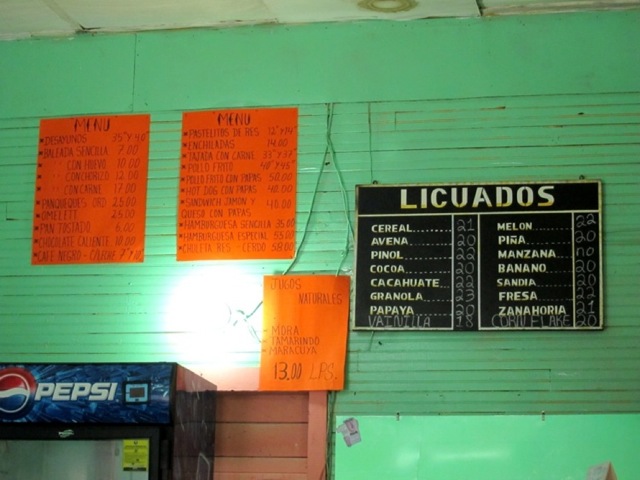 MENU
DESAYUNOS 35°° Y 40°°
BALEADA SENCILLA 7.00
" CON HUEVO 10.00
" CON CHORIZO 12.00
" CON CARNE 17.00
PANQUEQUES ORD 25.00
OMELETT 25.00
PAN TOSTADO 6.00
CHOCOLATE CALIENTE 10.00
CAFE NEGRO - C/LECHE 7 Y 10
MENU
PASTELITOS DE RES 12°° Y 14°°
ENCHILADAS 14.00
TAJADA CON CARNE 33°° Y 37°°
POLLO FRITO 40°° Y 45°°
POLLO FRITO CON PAPAS 50.00
HOT DOG CON PAPAS 40.00
SANDWICH JAMON Y
QUESO CON PAPAS 40.00
HAMBURGUESA SENCILLA 35.00
HAMBURGUESA ESPECIAL 55.00
CHULETA RES - CERDO 58.00
JUGOS
NATURALES
- MORA
- TAMARINDO
- MARACUYA
13.00 LPS.
LICUADOS
CEREAL 21
AVENA 20
PINOL
COCOA 20
CACAHUATE
GRANOLA 23
PAPAYA 20
VAINILLA 18
MELON 22
PIÑA 20
MANZANA no
BANANO 20
SANDIA 20
FRESA 22
ZANAHORIA 21
CORN FLAKE 20
PEPSI